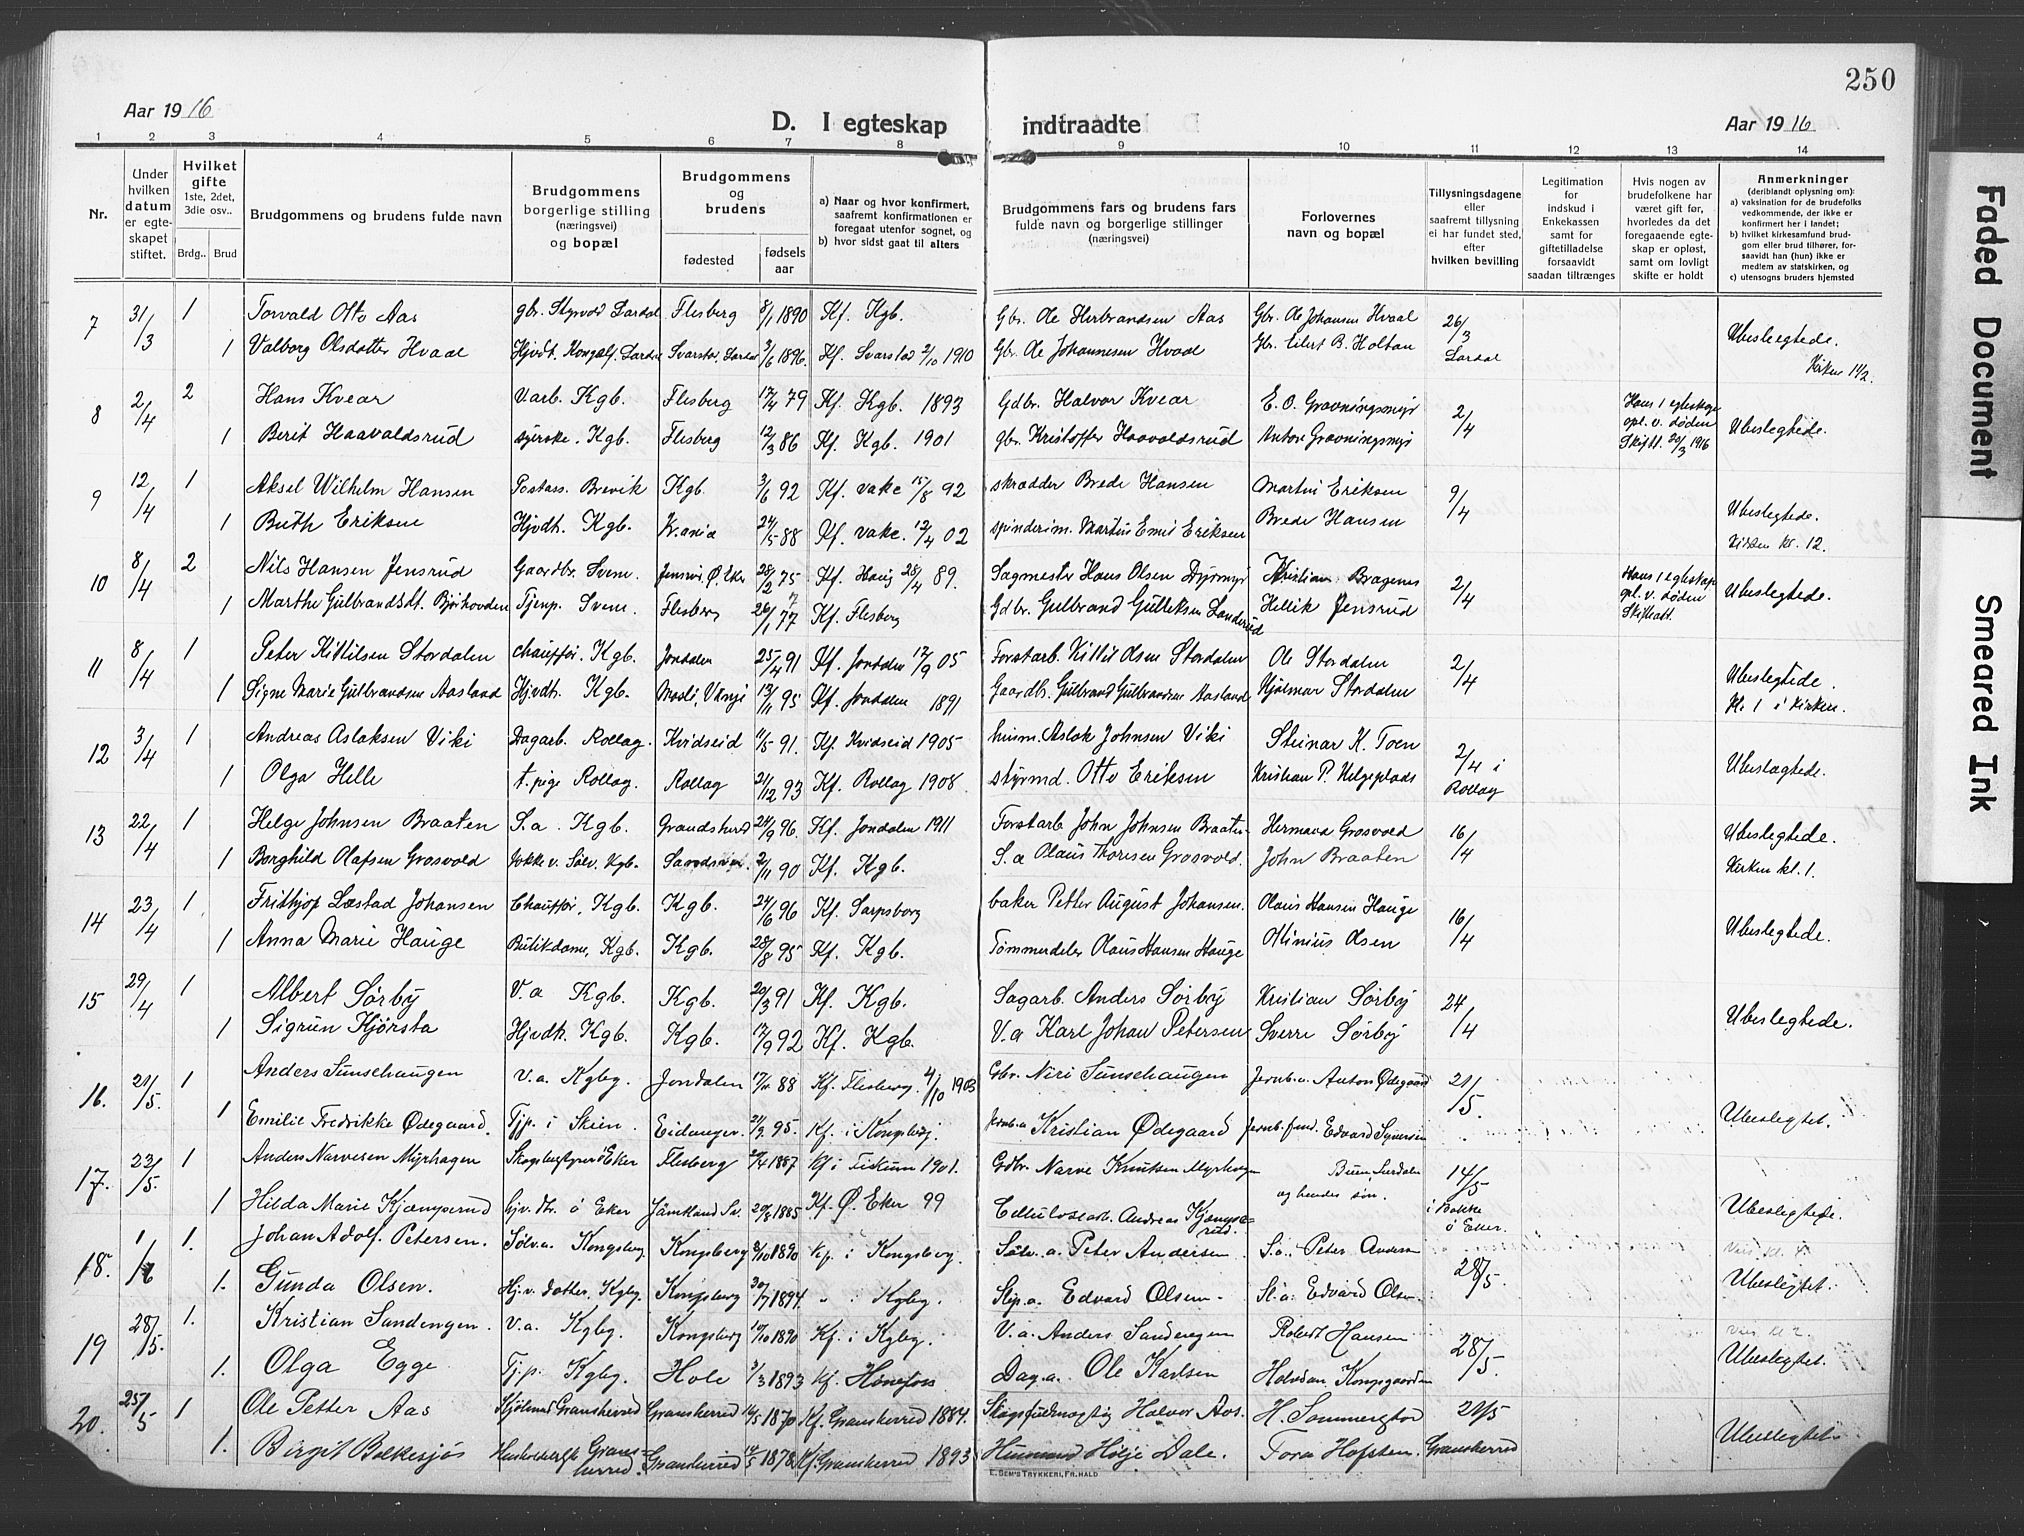 250
Aar 1916
D. I egteskap indtraadte
Aar 1916
1 2 3 4 5 6 7 8 9 10 11 12 13 14
Nr.
Under hvilken datum er egteskapet stiftet.
Hvilket gifte 1ste, 2det, 3die osv..
Brdg.. Brud
Brudgommens og brudens fulde navn
Brudgommens borgerlige stilling (næringsvei) og bopæl
Brudgommens og brudens
fødested
fødselsaar
a) Naar og hvor konfirmert, saafremt konfirmationen er foregaat utenfor sognet, og
b) hvor sidst gaat til alters
Brudgommens fars og brudens fars fulde navn og borgerlige stillinger (næringsvei)
Forlovernes navn og bopæl
Tillysningsdagene eller saafremt tillysning ei har fundet sted, efter hvilken bevilling
Legitimation for indskud i Enkekassen samt for giftetilladelse forsaavidt saadan tiltrænges
Hvis nogen av brudefolkene har været gift før, hvorledes da det foregaaende egteskap er opløst, samt om lovligt skifte er holdt
Anmerkninger (deriblandt oplysning om):
a) vaksination for de brudefolks vedkommende, der ikke er konfirmert her i landet;
b) hvilket kirkesamfund brudgom eller brud tilhører, forsaavidt han (hun) ikke er medlem av statskirken, og
c) utensogns bruders hjemsted
7 31/3 1 Torvald Otto Aas gbr. Styrvod Lardal Flesberg 8/1 1890 Kf. Kgb. Gbr. Ole Herbrandsen Aas Gbr. Ole Johansen Hvaal 26/3 Lardal Ubeslegtede.
1 Valborg Olsdatter Hvaal Hjvdt. Lardal Svarstad, Lardal 3/6 1896. Kf. Svarstad 2/10 1910 Gbr. Ole Johannesen Hvaal Gbr. Eilert B. Holtan Kirken 1 1/2.
8 2/4 2 Hans Kvear V.arb. Kgb. Flesberg 17/4 79 Kf. Kgb. 1893 Gdbr. Halvor Kvear E. O. Gravningsmyr 2/4 Hans 1 egteskap opl. v. døden Skift. 20/3 1916 Ubeslegtede.
1 Berit Haavaldsrud syerske. Kgb. Flesberg 12/3 86 Kf. Kgb. 1901 gbr. Kristoffer Haavaldsrud Anton Gravningsmyr
9 12/4 1 Aksel Wilhelm Hansen Postass. Brevik Kgb. 3/6 92 Kf. vake 15/8 92 skrædder Brede Hansen Martin Eriksen 9/4 Ubeslegtede.
1 Ruth Eriksen Hjvdt. Kgb. Kr.ania 24/5 88 Kf. vake. 12/4 02 spinderim. Martin Emil Eriksen Brede Hansen Kirken kl. 12.
10 8/4 2 Nils Hansen Jensrud Gaardbr. Svene. Jensrud, Ø. Eker 28/2 75 Kf. Haug 28/4 89. Sagmester Hans Olsen Dyrmyr Kristian Bragernes 2/4 Hans 1 egteskap opl. v. døden Skifteatt. Ubeslegtede.
1 Marthe Gulbrandsdt. Bjørhovden Tjenp. Svene. Flesberg 26/1 77 Kf. Flesberg Gdbr. Gulbrand Gulleksen Landerud Hellik Jensrud
11 8/4 1 Peter Kittilsen Stordalen chauffør. Kgb. Jondalen 25/4 91 Kf. Jondalen 17/9 05 Forstarb. Kittil Olsen Stordalen Ole Stordalen 2/4 Ubeslegtede.
1 Signe Marie Gulbrandsen Aasland Hjvdt. Kgb. 13/11 95 Kf. Jondalen 1891 Gaardbr. Gulbrand Gulbrandsen Aasland Hjalmar Stordalen Kl. 1 i Kirken.
12 3/4 1 Andreas Aslaksen Viki Dagarb. Rollag. Kvidseid 11/5 91. Kf. Kvidseid 1905 husm. Aslak Johnsen Viki Steinar K. Toen 2/4 i Rollag Ubeslægtede.
1 Olga Helle t. pige Rollag. Rollag 21/12 93 Kf. Rollag 1908. styrmd. Otto Eriksen Kristian P. Helgeplads
13 22/4 1 Helge Johnsen Braaten S.a. Kgb. Grandsherd 24/9 96. Kf. Jondalen 1911 Forstarb John Johnsen Braaten Herman Grosvold 16/4 Ubeslegtede.
1 Borghild Olafsen Grosvold Jokke v. Sølv. Kgb. Sandsvær. 2/11 90 Kf. Kgb. S.a Olaus Thoresen Grosvold. John Braaten Kirken kl. 1.
14 23/4 1 Frithjof Læstad Johansen Chauffør, Kgb. Kgb. 24/6 96 Kf. Sarpsborg baker Petter August Johansen. Olaus Hansen Hauge 16/4 Ubeslegtede.
1 Anna Marie Hauge Butikdame, Kgb. Kgb. 28/8 95 Kf. Kgb. Tømmerdeler Olaus Hansen Hauge Olinius Olsen
15 29/4 1 Albert Sørby V.a Kgb. Kgb. 20/3 91 Kf. Kgb. Sagarb. Anders Sørby Kristian Sørby 24/4 Ubeslegtede.
1 Sigrun Kjørsta Hjvdt. Kgb. Kgb. 17/9 92 Kf. Kgb. V.a Karl Johan Petersen Sverre Sørby
16. 21/5. 1 Anders Sunsehaugen V.a. Kgbg. Jondalen 17/11 88 Kf. Flesberg. 4/10 1903 Gbr. Niri Sunsehaugen Jernb.a. Anton Ødegaard 21/5. Ubeslegtet.
1 Emilie Fredrikke Ødegaard. Tjp. i Skien. Eidanger. 21/9. 95. Kf. i Kongsberg. Jernb.a Kristian Ødegaard Jernb. fund. Edvard Syversen
17. 23/5. 1 Anders Narvesen Myrhagen Skogbestyrer ø Eker Flesberg 21/4 1887 Kf i Fiskum 1901. Gdbr. Narve Knutsen Myrhagen 14/5 i Bakke ø Eker. Ubeslegtede.
1 Hilda Marie Kjæmperud hjv. dtr. ø Eker Jämtland Sv. 20/8 1885 Kf. Ø. Eker 99 Cellulosearb. Andreas Kjæmperud. og hendes søn.
18. 1/6 1. Johan Adolf Petersen. Sølv.a Kongsberg. Kongsberg 3/10 1890 Kf. i Kongsberg. Sølv. a. Peter Andersen. S.a. Peter Andersen 28/5. Vies kl. 4. Ubeslegtet.
1. Gunda Olsen. Hj. v. datter, Kgbg. Kongsberg 20/7 1894. „ „ Kgbg. Slip.a. Edvard Olsen. Sl.a. Edvard Olsen.
19 28/5. 1. Kristian Sandengen. V.a. Kgbg. Kongsberg 10/10 1890 Kf. i Kgbg. V.a. Anders Sandengen Robert Hansen 28/5. Vies kl 2. Ubeslegtet.
1. Olga Egge Tj.p. Kgbg. Hole 3/3 1893 Kf. Hønefoss Dag.a. Ole Karlsen Halvdan Kongsgaarden
20. 25/5 1 Ole Petter Aas Granskerred Granskerred 14/5 1870 Kf. Granskerred 1884. Skogsfuldmægtig Halvor Aas. H. Sommergtad 21/5 Granskerred Ubeslegtet.
1. Birgit Bolkesjøs Granskerred. Granskerred 17/5 1878 Kf. Granskerred 1893 Husmand Hølje Dale. Tora Hofsten.
E. SEM'S TRYKKERI, FR.HALD
Faded Document
Smeared Ink